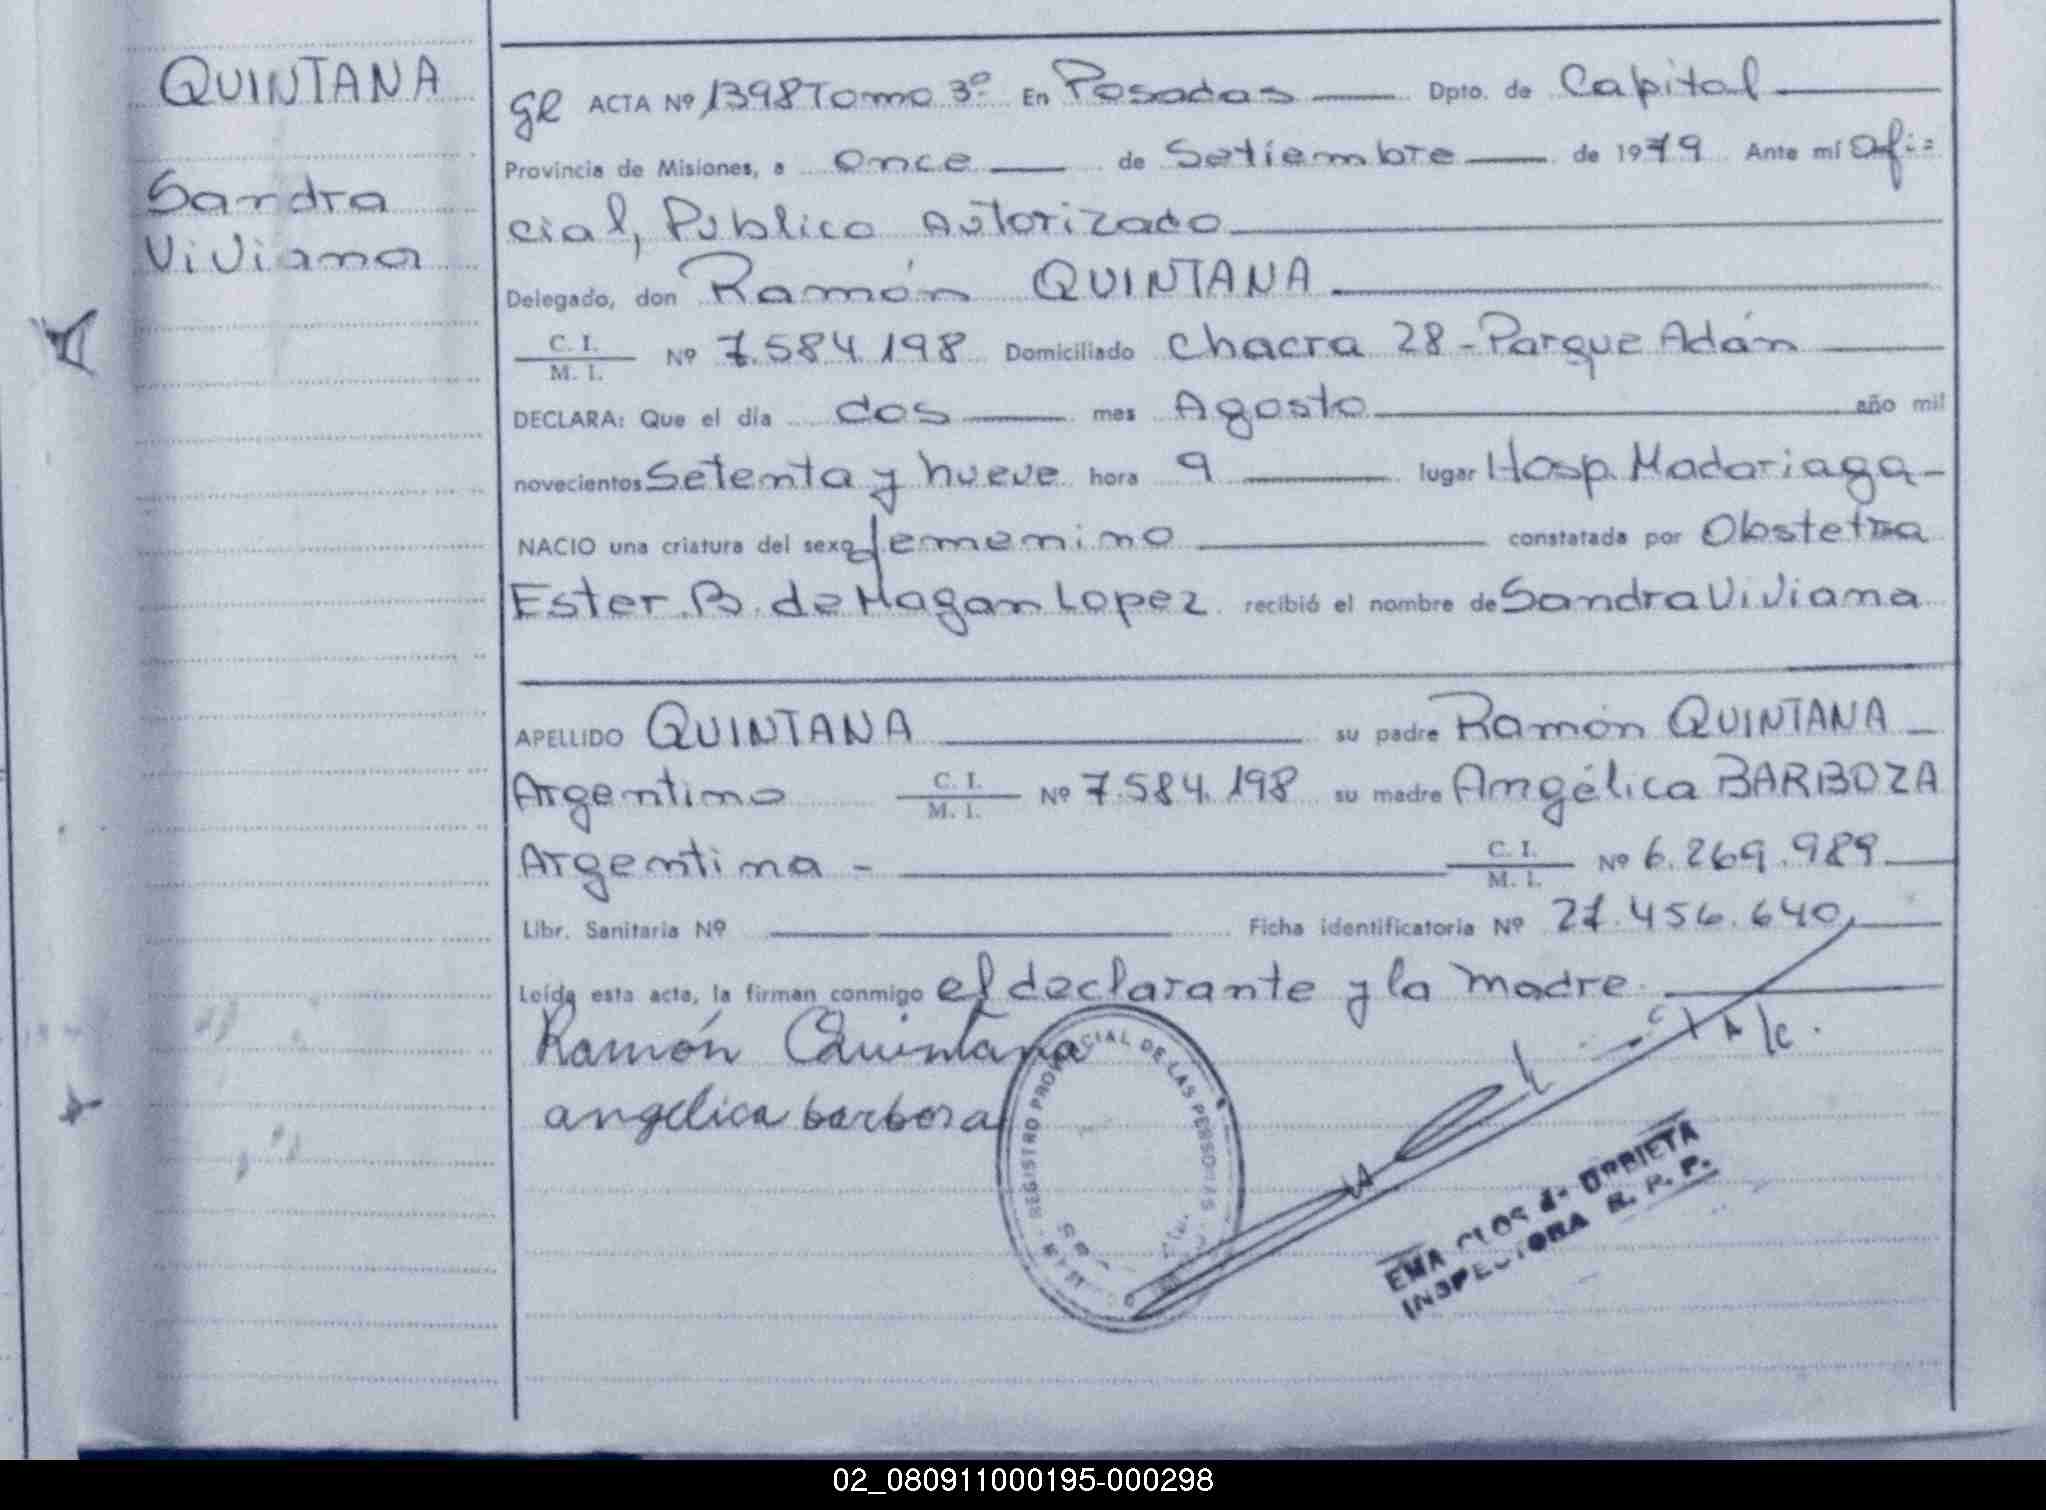 QUINTANA
Sandra
Viviana
ge ACTA Nº 1398 Tomo 3º En Posadas Dpto. de Capital
Provincia de Misiones, a once de Setiembre de 1979 Ante mí Ofi=
cial, Publico Autorizado
Delegado, don Ramón QUINTANA
C. I.
M. I. Nº 7.584.198 Domiciliado Chacra 28 - Parque Adán
DECLARA: Que el día dos mes Agosto año mil
novecientos Setenta y nueve hora 9 lugar Hosp. Madariaga -
NACIO una criatura del sexo femenino constatada por Obstetra
Ester B. de Magan Lopez recibió el nombre de Sandra Viviana
APELLIDO QUINTANA su padre Ramón QUINTANA
Argentino C. I.
M. I. Nº 7.584.198 su madre Angélica BARBOZA
Argentina - C. I.
M. I. Nº 6.269.989
Libr. Sanitaria Nº Ficha identificatoria Nº 27.456.640
Leída esta acta, la firman conmigo el declarante y la madre.
Ramón Quintana
angelica barboza
REGISTRO PROVINCIAL DE LAS PERSONAS
EMA CLOS de URRIETA
INSPECTORA R. P. P.
02_080911000195-000298